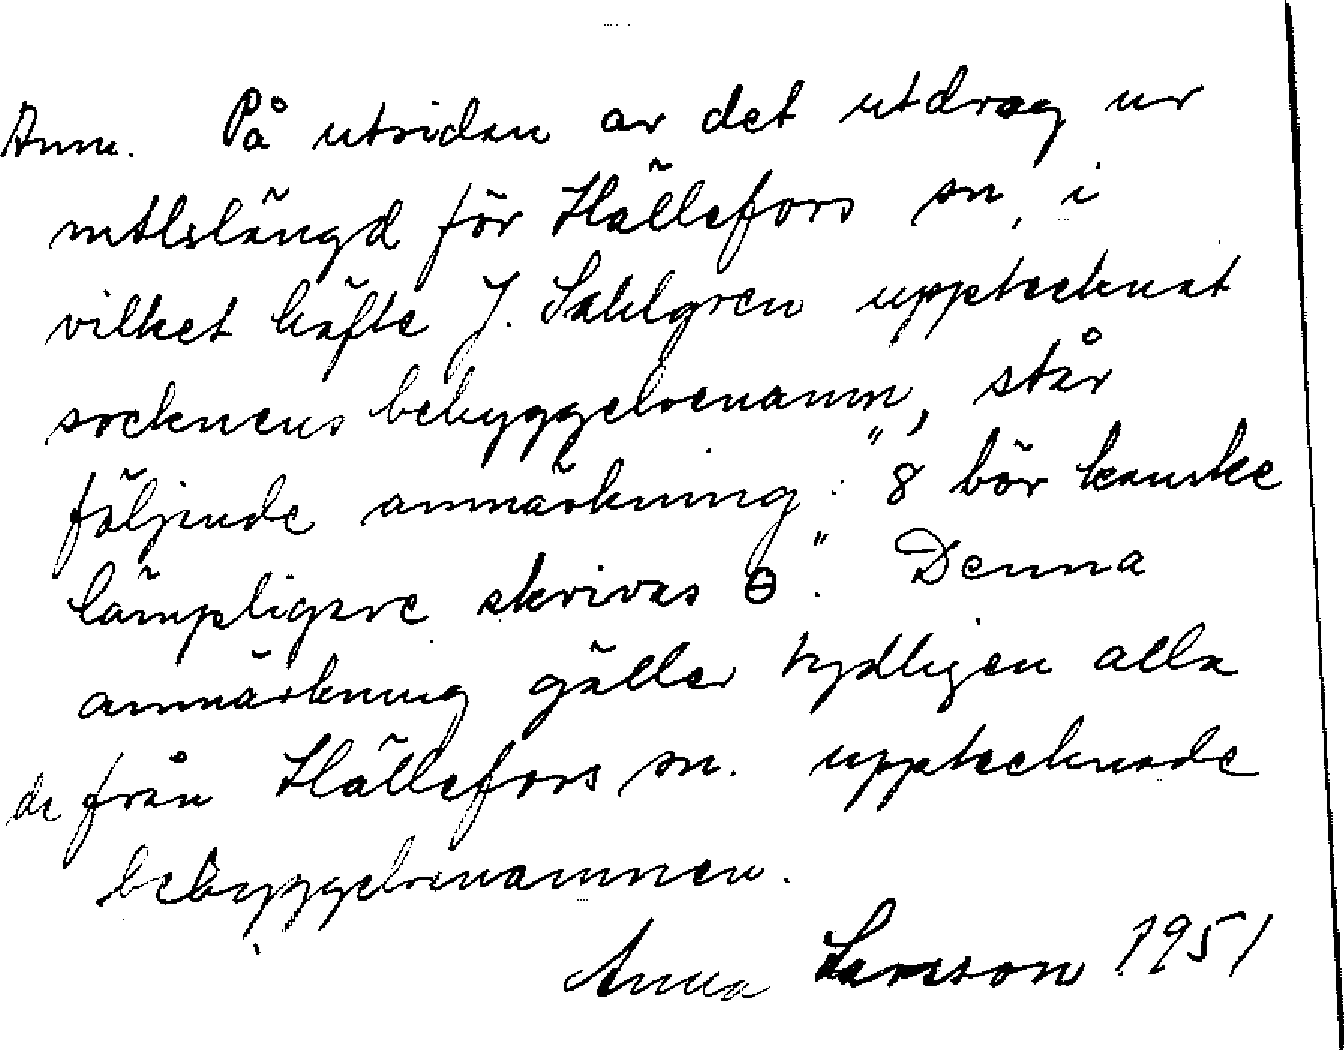 Anm. På utsidan av det utdrag ur
mtlslängd för Hällefors sn, i
vilket häfte J. Sahlgren upptecknat
socknens bebyggelsenamn, står
följande anmärkning: "8 bör kanske
lämpligare skrivas ɵ". Denna
anmärkning gäller tydligen alla
de från Hällefors sn. upptecknade
bebyggelsenamnen.
Anna Larsson 1951